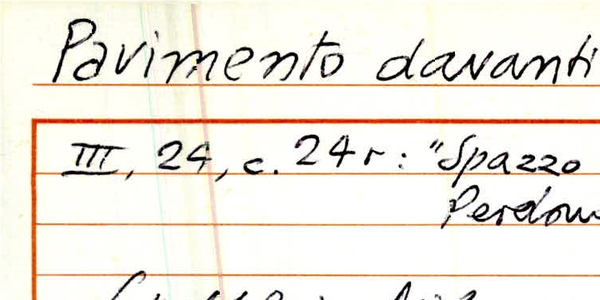 Pavimento davanti
III, 24, c. 24 r: "Spazzo